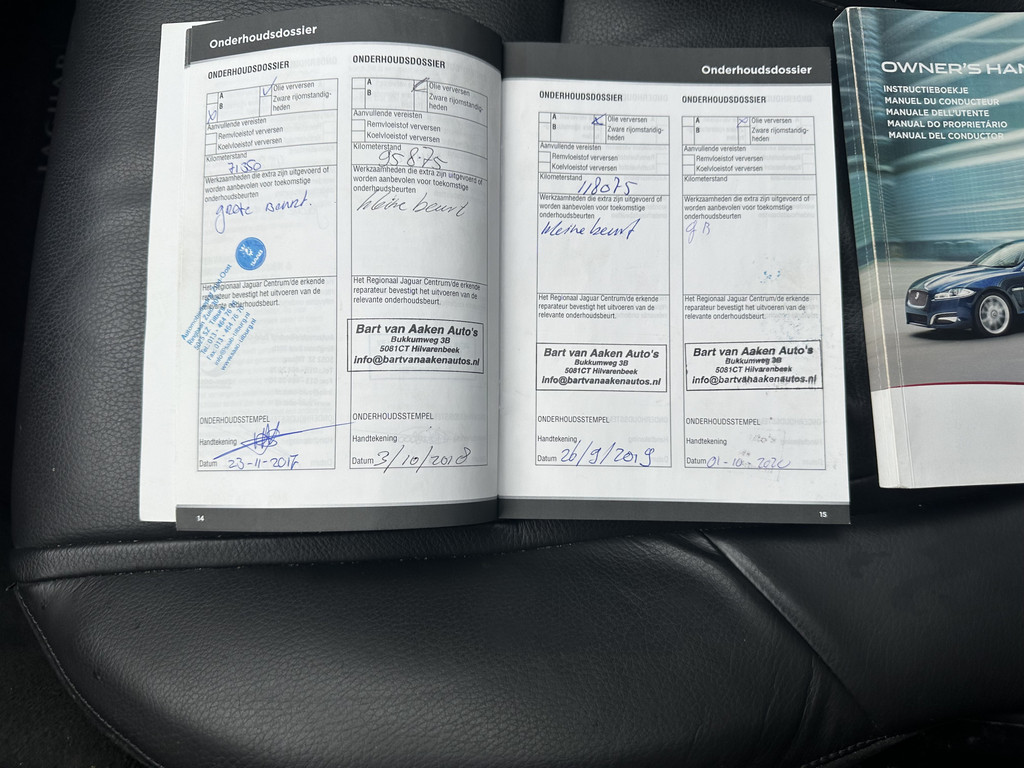 Onderhoudsdossier
ONDERHOUDSDOSSIER
A
B
Olie verversen
Zware rijomstandig-
heden
Aanvullende vereisten
Remvloeistof verversen
Koelvloeistof verversen
Kilometerstand
71550
Werkzaamheden die extra zijn uitgevoerd of
worden aanbevolen voor toekomstige
onderhoudsbeurten
grote beurt.
Het Regionaal Jaguar Centrum/de erkende
reparateur bevestigt het uitvoeren van de
relevante onderhoudsbeurt.
ONDERHOUDSSTEMPEL
Handtekening
Datum 23-11-2017
14
ONDERHOUDSDOSSIER
A
B
Olie verversen
Zware rijomstandig-
heden
Aanvullende vereisten
Remvloeistof verversen
Koelvloeistof verversen
Kilometerstand
95875
Werkzaamheden die extra zijn uitgevoerd of
worden aanbevolen voor toekomstige
onderhoudsbeurten
kleine beurt
Het Regionaal Jaguar Centrum/de erkende
reparateur bevestigt het uitvoeren van de
relevante onderhoudsbeurt.
Bart van Aaken Auto's
Bukkumweg 3B
5081CT Hilvarenbeek
info@bartvanaakenautos.nl
ONDERHOUDSSTEMPEL
Handtekening
Datum 3/10/2018
Onderhoudsdossier
ONDERHOUDSDOSSIER
A
B
Olie verversen
Zware rijomstandig-
heden
Aanvullende vereisten
Remvloeistof verversen
Koelvloeistof verversen
Kilometerstand
118075
Werkzaamheden die extra zijn uitgevoerd of
worden aanbevolen voor toekomstige
onderhoudsbeurten
kleine beurt
Het Regionaal Jaguar Centrum/de erkende
reparateur bevestigt het uitvoeren van de
relevante onderhoudsbeurt.
Bart van Aaken Auto's
Bukkumweg 3B
5081CT Hilvarenbeek
info@bartvanaakenautos.nl
ONDERHOUDSSTEMPEL
Handtekening
Datum 26/9/2019
ONDERHOUDSDOSSIER
A
B
Olie verversen
Zware rijomstandig-
heden
Aanvullende vereisten
Remvloeistof verversen
Koelvloeistof verversen
Kilometerstand
Werkzaamheden die extra zijn uitgevoerd of
worden aanbevolen voor toekomstige
onderhoudsbeurten
g B
Het Regionaal Jaguar Centrum/de erkende
reparateur bevestigt het uitvoeren van de
relevante onderhoudsbeurt.
Bart van Aaken Auto's
Bukkumweg 3B
5081CT Hilvarenbeek
info@bartvanaakenautos.nl
ONDERHOUDSSTEMPEL
Handtekening
Datum 01-10-2020
15
OWNER'S HAN
INSTRUCTIEBOEKJE
MANUEL DU CONDUCTEUR
MANUALE DELL'UTENTE
MANUAL DO PROPRIETÁRIO
MANUAL DEL CONDUCTOR